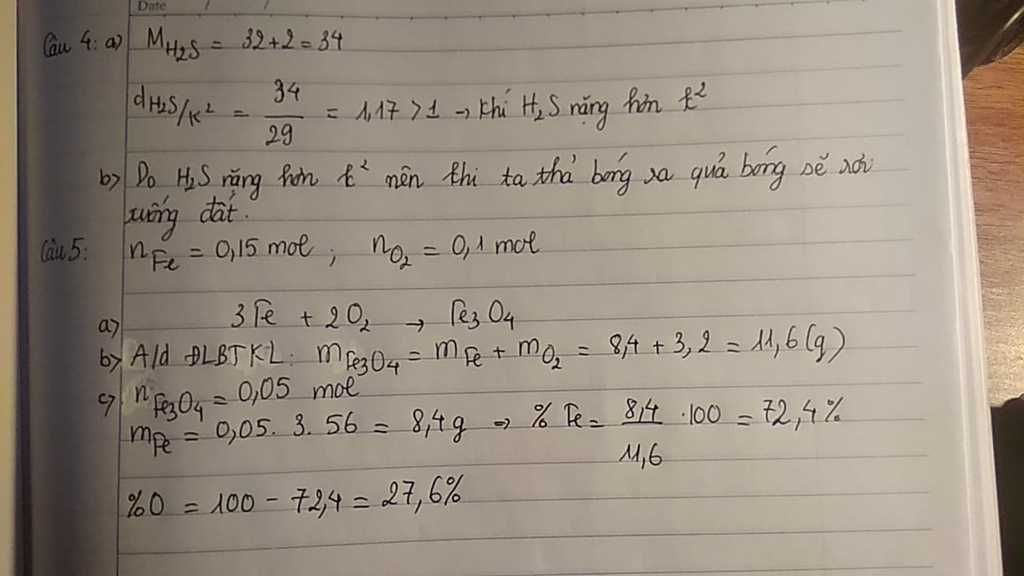 Date / /
Câu 4: a) M_H₂S = 32+2 = 34
d_H₂S/K² = 34/29 = 1,17 > 1 → Khí H₂S nặng hơn k²
b) Do H₂S nặng hơn k² nên khi ta thả bóng ra quả bóng sẽ rơi
xuống đất.
Câu 5: n_Fe = 0,15 mol ; n_O₂ = 0,1 mol
a) 3Fe + 2O₂ → Fe₃O₄
b) A/d ĐLBTKL: m_Fe₃O₄ = m_Fe + m_O₂ = 8,4 + 3,2 = 11,6 (g)
c) n_Fe₃O₄ = 0,05 mol
m_Fe = 0,05. 3. 56 = 8,4g → % Fe = 8,4/11,6 .100 = 72,4%
%O = 100 - 72,4 = 27,6%